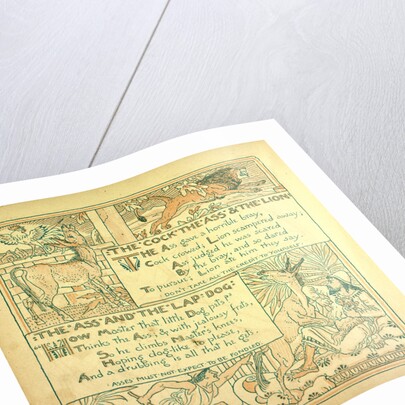 :THE·COCK·THE·ASS·&·THE·LION:
THE Ass gave a horrible bray,
Cock crowed; Lion scampered away;
Ass judged he was scared
By the bray, and so dared
To pursue; Lion ate him they say.
DON'T TAKE ALL THE CREDIT TO YOURSELF
:THE·ASS·AND·THE·LAP·DOG:
HOW Master that little Dog pets,"
Thinks the Ass; & with jealousy frets,
So he climbs Master's knees,
Hoping dog-like to please,
And a drubbing is all that he gets.
ASSES MUST NOT EXPECT TO BE FONDLED